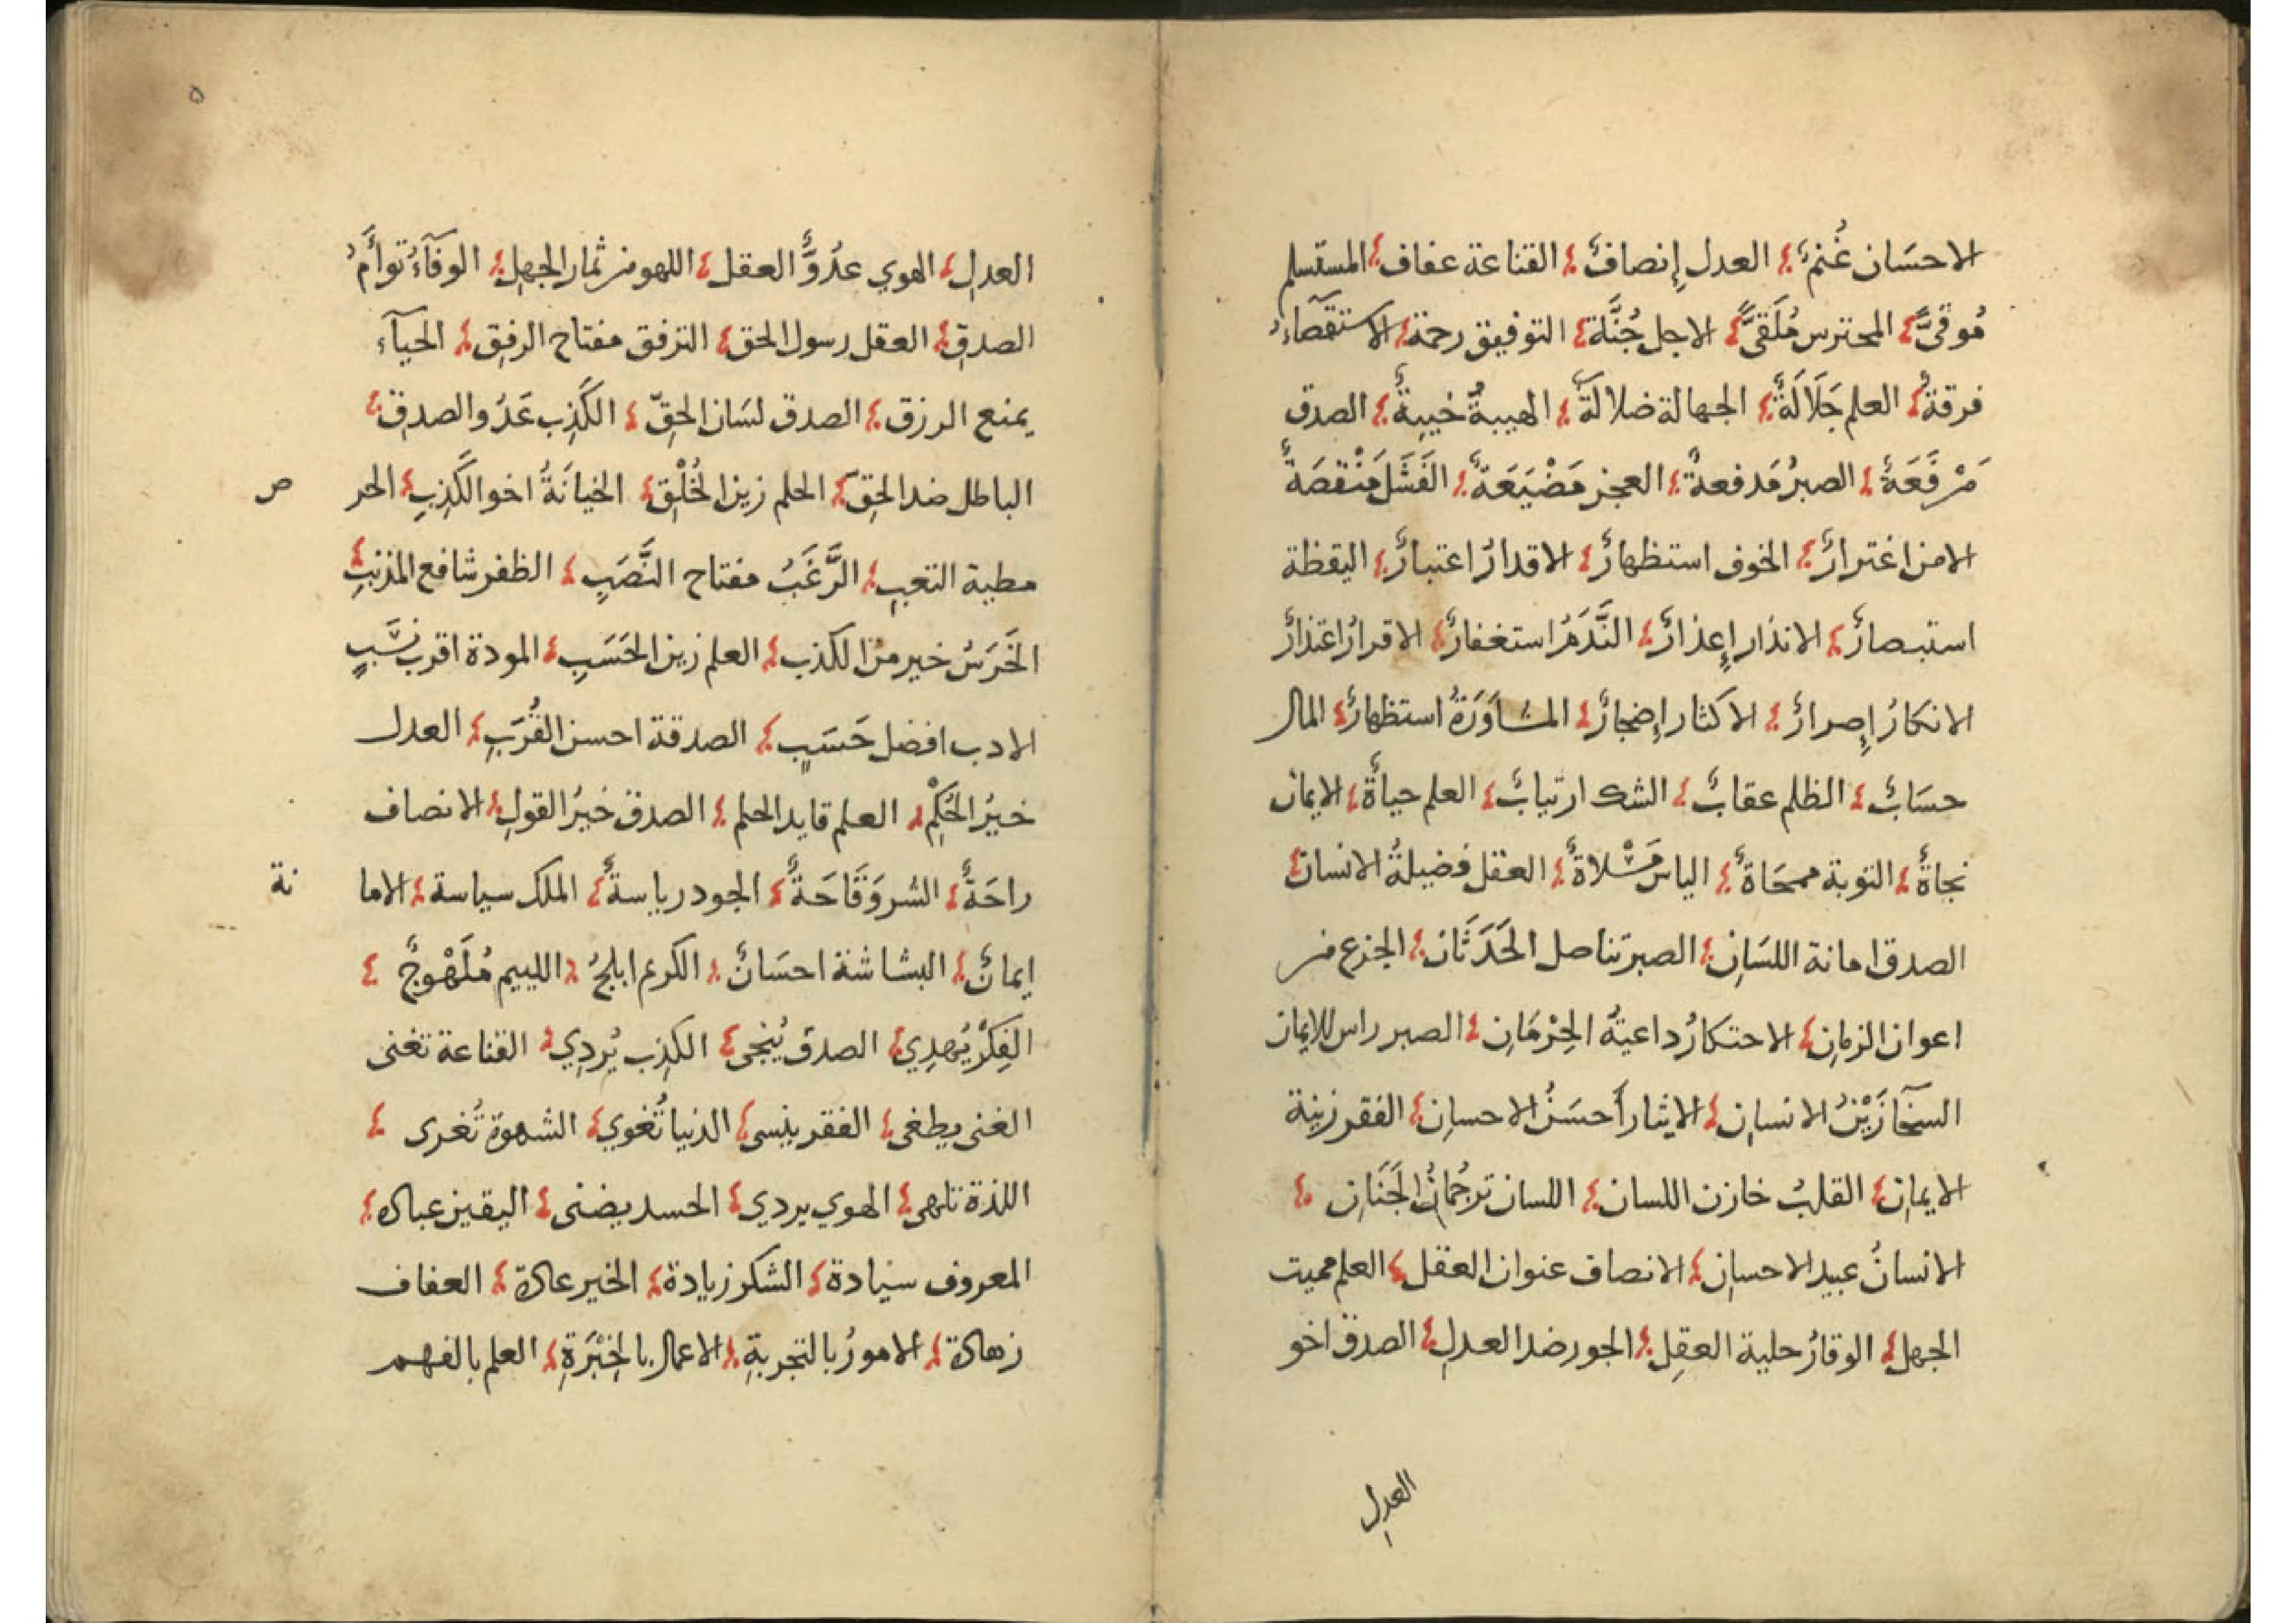 الاحسَان غُنمٌ؛ العدل إِنصافٌ؛ القناعة عفاف؛ المستسلم
مُوقًىّ؛ المحترس مُلَقىًّ؛ الاجل جُنَّة؛ التوفيق رحمة؛ الاستقصَآءُ
فرقةٌ؛ العلم جَلَالَةٌ؛ الجهالة ضلالَةٌ؛ الهيبةٌ خيبةٌ؛ الصدق
مَرْفَعَةٌ؛ الصبرُ مَدفعةٌ؛ العجز مَضْيَعَةٌ؛ الفَشَل مَنْقصَةٌ
الامن اغترارٌ؛ الخوف استظهارٌ؛ الاقدارُ اعتبارٌ؛ اليقظة
استبصارٌ؛ الانذار إِعذارٌ؛ النَّدَمُ استغفارٌ؛ الاقرارُ اعتذارٌ
الانكارُ إِصرارٌ؛ الاكثار إِضجارٌ؛ المشاوَرَةُ استظهارٌ؛ المال
حسَابٌ؛ الظلم عقابٌ؛ الشك ارتيابٌ؛ العلم حياةٌ؛ الايمان
نجاةٌ؛ التوبة ممحَاةٌ؛ الياس مَسْلاةٌ؛ العقل فضيلةُ الانسان؛
الصدق امانة اللسَانِ؛ الصبر تناصل الحَدَثَان؛ الجزع من
اعوان الزمانِ؛ الاحتكارُ داعيةُ الحِرْمَانِ؛ الصبر راس الايمان
السخآ زَيْنُ الانسانِ؛ الايثار أَحسَنُ الاحسانِ؛ الفقر زينة
الايمانِ؛ القلبُ خازن اللسان؛ اللسان ترجُمانُ الجَنَانِ؛
الانسانُ عبيد الاحسانِ؛ الانصاف عنوان العقل؛ العلم مميت
الجهل؛ الوقارُ حلية العقِلِ؛ الجور ضد العدلِ؛ الصدق اخو
العدل
العدلِ؛ الهوي عدُوُّ العقل؛ اللهو من ثمار الجهلِ؛ الوفآءُ توأَمُ
الصدقِ؛ العقل رسول الحق؛ الترفق مفتاح الرفِق؛ الحيآء
يمنع الرزق؛ الصدق لسَان الحِقّ؛ الكَذِب عَدُو الصدقِ؛
الباطل ضد الحِقّ؛ الحلم زين الخُلْقِ؛ الخيانَةُ اخو الكَذِبِ؛ الحر
ص
مطية التعبِ؛ الرَّغَبُ مفتاح النَّصَبِ؛ الظفر شافع المذنبِ؛
الخَرَسُ خير من الكذب؛ العلم زين الحَسَبِ؛ المودة اقرب نسَبٍ
الادب افضل حَسَبٍ؛ الصدقة احسن القُرَبِ؛ العدل
خيرُ الحُكِمْ؛ العلم قايد الحلم؛ الصدق خيرُ القولِ؛ الانصاف
راحَةٌ؛ الشر وَقَاحَةٌ؛ الجود رياسةٌ؛ الملك سياسة؛ الاما
نة
ايمانٌ؛ البشاشة احسَانٌ؛ الكرم ابلجُ؛ اللييم مُلَهْوجٌ؛
الفِكرُ يُهدِي؛ الصدق يُنجى؛ الكذِب يُردِي؛ القناعة تغنى
الغنى يطغى؛ الفقر ينسى؛ الدنيا تُغوي؛ الشهوة تُغرى؛
اللذة تلهى؛ الهوي يردي؛ الحسد يضنى؛ اليقين عبادة؛
المعروف سيادة؛ الشكر زيادة؛ الخير عادة؛ العفاف
زهادة؛ الامورُ بالتجربةِ؛ الاعمال بالخِبْرَةِ؛ العلم بالفهم